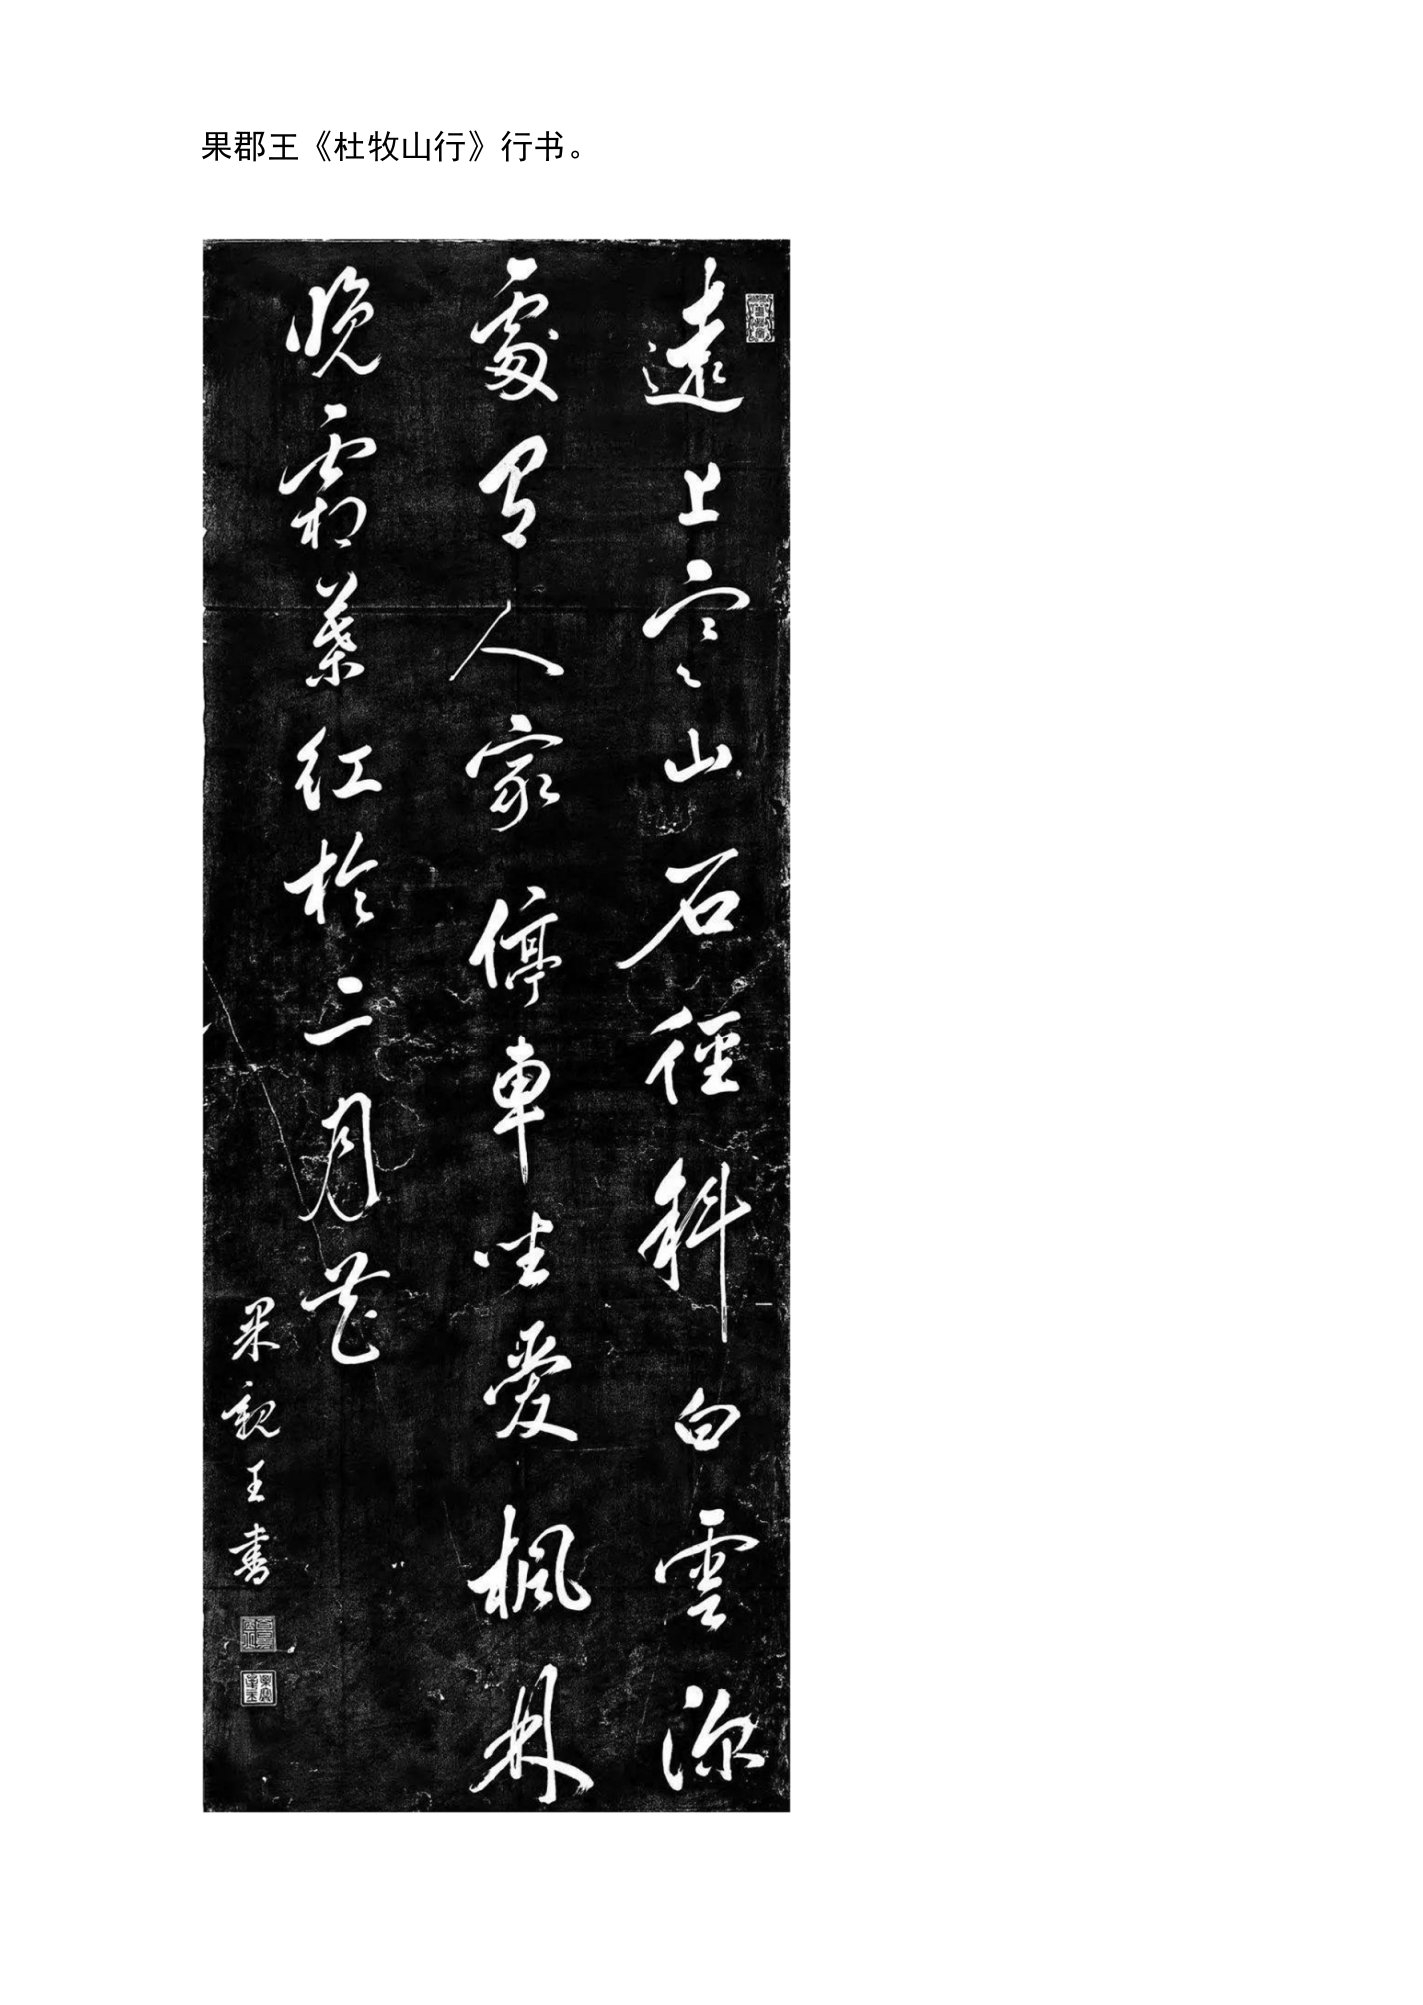 果郡王《杜牧山行》行书。
遠上寒山石徑斜白雲深
處有人家停車坐愛楓林
晚霜葉紅於二月花
果親王書